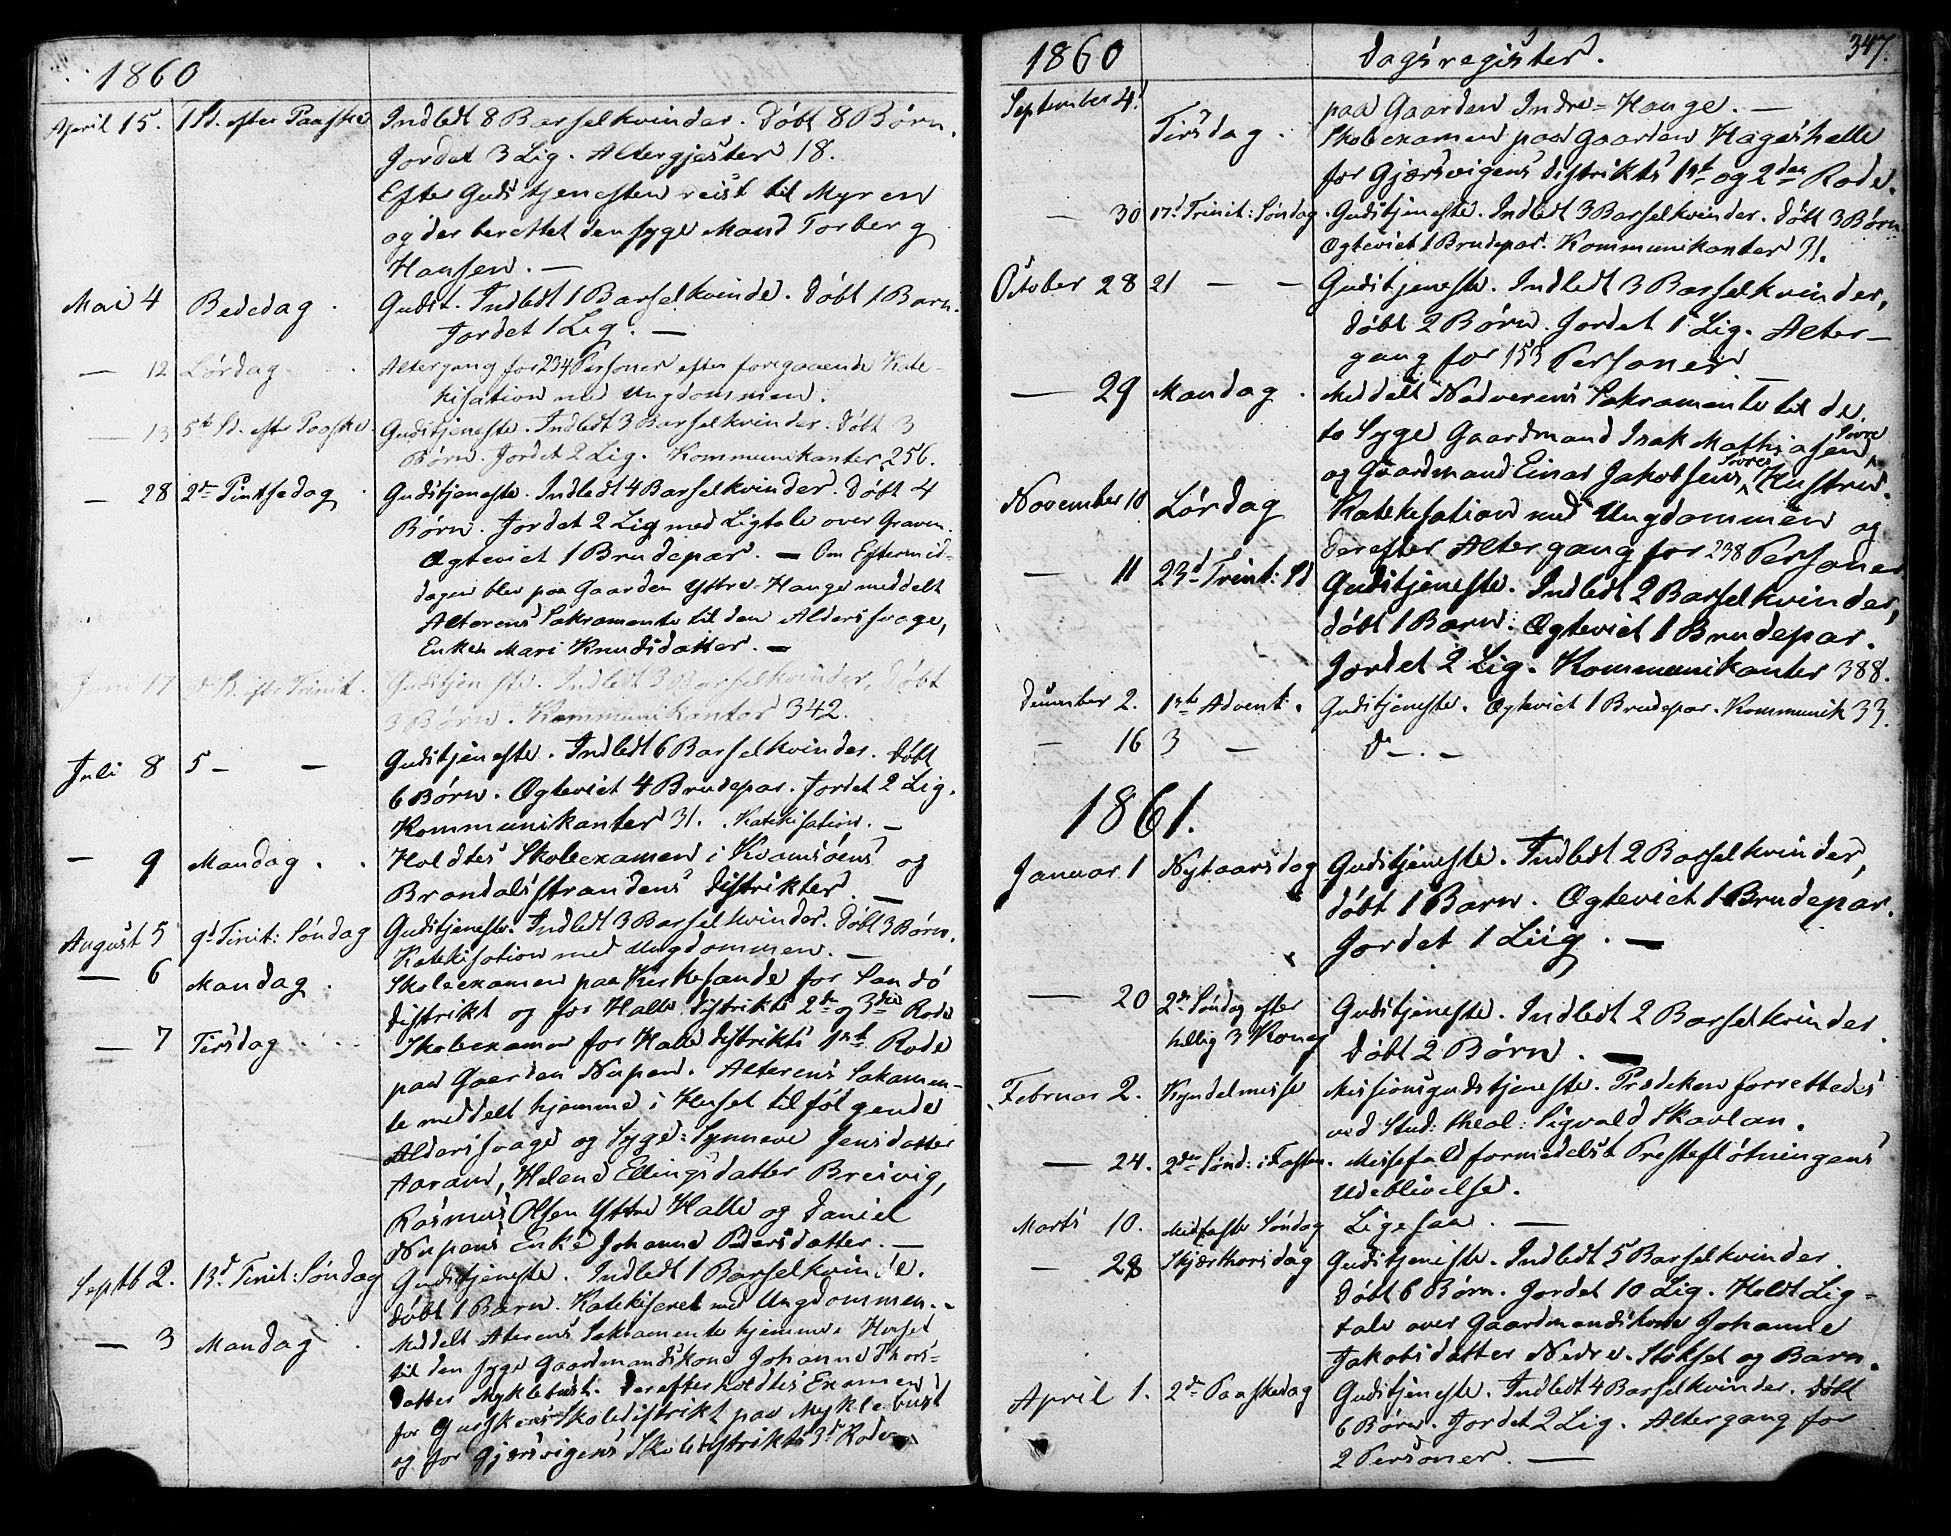 1860
April 15. 1 Sd. efter Paaske Indledt 8 Barselkvinder. Døbt 8 Børn.
Jordet 3 Lig. Altergjester 18.
Efter Gudstjenesten reist til Myren
og der berettet den syge Mand Torberg
Hansen. —
Mai 4 Bededag. Gudst. Indledt 1 Barselkvinde. Døbt 1 Barn.
Jordet 1 Lig. —
— 12 Lørdag. Altergang for 234 Personer efter foregaaende Kate-
kisation med Ungdommen.
— 13 5te Sd. efter Paaske. Gudstjeneste. Indledt 3 Barselkvinder. Døbt 3
Børn. Jordet 2 Lig. Kommunikanter 256.
— 28 2den Pintsedag. Gudstjeneste. Indledt 4 Barselkvinder. Døbt 4
Børn. Jordet 2 Lig med Ligtale over Graven.
Ægteviet 1 Brudepar. — Om Eftermid-
dagen blev paa Gaarden Yttre-Hauge meddelt
Alterens Sakramente til den Aldersvage,
Enken Mari Knudsdatter. —
Juni 17 Sd. efter Trinit. Gudstjeneste. Indledt 3 Barselkvinder, Døbt
3 Børn. Kommunikanter 342.
Juli 8 5 — — Gudstjeneste. Indledt 6 Barselkvinder. Døbt
6 Børn. Ægteviet 4 Brudepar. Jordet 2 Lig.
Kommunikanter 31. Katekisation. —
— 9 Mandag. Holdtes Skoleexamen i Kvamsøens og
Brandalsstrandens Distrikter. —
August 5 9d Trinit: Søndag Gudstjeneste. Indledt 3 Barselkvinder. Døbt 3 Børn.
Katekisation med Ungdommen. —
— 6 Mandag. Skoleexamen paa Kirkesande for Sandø
Distrikt og for Halle Distrikts 2den og 3die Rode
— 7 Tirsdag. Skoleexamen for Halle Distrikts 1ste Rode
paa Gaarden Nupen. Alterens Sakamen-
te meddelt hjemme i Huset til følgende
Aldersvage og Syge: Synneve Jensdatter
Aaram, Helene Ellingsdatter Breivig,
Rasmus Olsen Yttre Halle og Daniel
Nupens Enke Johanne Pedersdatter. —
Septb 2. 13d Trinit: Søndag Gudstjeneste. Indledt 1 Barselkvinde.
Døbt 1 Barn. Katekiseret med Ungdommen. -
— 3 Mandag. Meddelt Alterens Sakramente hjemme i Huset
til den syge Gaardmandskone Johanne Thors-
datter Myklebust. Derefter holdtes Examen
for Gurskens Skoledistrikt paa Myklebust
og for Gjærsvigens Skoledistrikts 3d Rode
1860 Dagsregister. 347.
September 4. paa Gaarden Indre-Hauge. —
Tirsdag. Skoleexamen paa Gaarden Hageshelle
for Gjærsvigens Distrikts 1ste og 2den Rode.
— 30 17d Trinit: Søndag. Gudstjeneste. Indledt 3 Barselkvinder. Døbt 3 Børn
Ægteviet 1 Brudepar. Kommunikanter 31.
October 28 21 — — Gudstjeneste. Indledt 3 Barselkvinder,
Døbt 2 Børn. Jordet 1 Lig. Alter-
gang for 153 Personer —
— 29 Mandag. Meddelt Nadverens Sakramente til de
to Syge Gaardmand Isak Mathiasen Sovre
og Gaardmand Einar Jakobsens Sovre Hustru.
November 10 Lørdag Katekisation med Ungdommen og
derefter Altergang for 238 Personer
— 11 23d Trinit: Sd Gudstjeneste. Indledt 2 Barselkvinder,
Døbt 1 Barn. Ægteviet 1 Brudepar.
Jordet 2 Lig. Kommunikanter 388.
December 2. 1ste Advent. Gudstjeneste. Ægteviet 1 Brudepar. Kommunik 33.
— 16 3 — Do — . —
1861.
Januar 1 Nytaarsdag Gudstjeneste. Indledt 2 Barselkvinder,
Døbt 1 Barn. Ægteviet 1 Brudepar.
Jordet 1 Liig. —
— 20 2den Søndag efter
hellig 3 Konger Gudstjeneste. Indledt 2 Barselkvinder
Døbt 2 Børn. —
Februar 2. Kyndelmisse Missionsgudstjeneste. Prædiken forrettedes
ved Stud: theol: Sigvald Skavlan.
— 24. 2den Sønd: i Fasten. Messefald formedelst Prestefløtningens
Udeblivelse.
Marts 10. Midfaste Søndag Ligesaa. —
— 28 Skjærthorsdag Gudstjeneste. Indledt 5 Barselkvinder.
Døbt 6 Børn. Jordet 10 Lig. Holdt Lig-
tale over Gaardmandskone Johanne
Jakobsdatter Nedre-Stokset og Barn.
April 1. 2den Paaskedag Gudstjeneste. Indledt 4 Barselkvinder. Døbt
6 Børn. Jordet 2 Lig. Altergang for
2 Personer. —